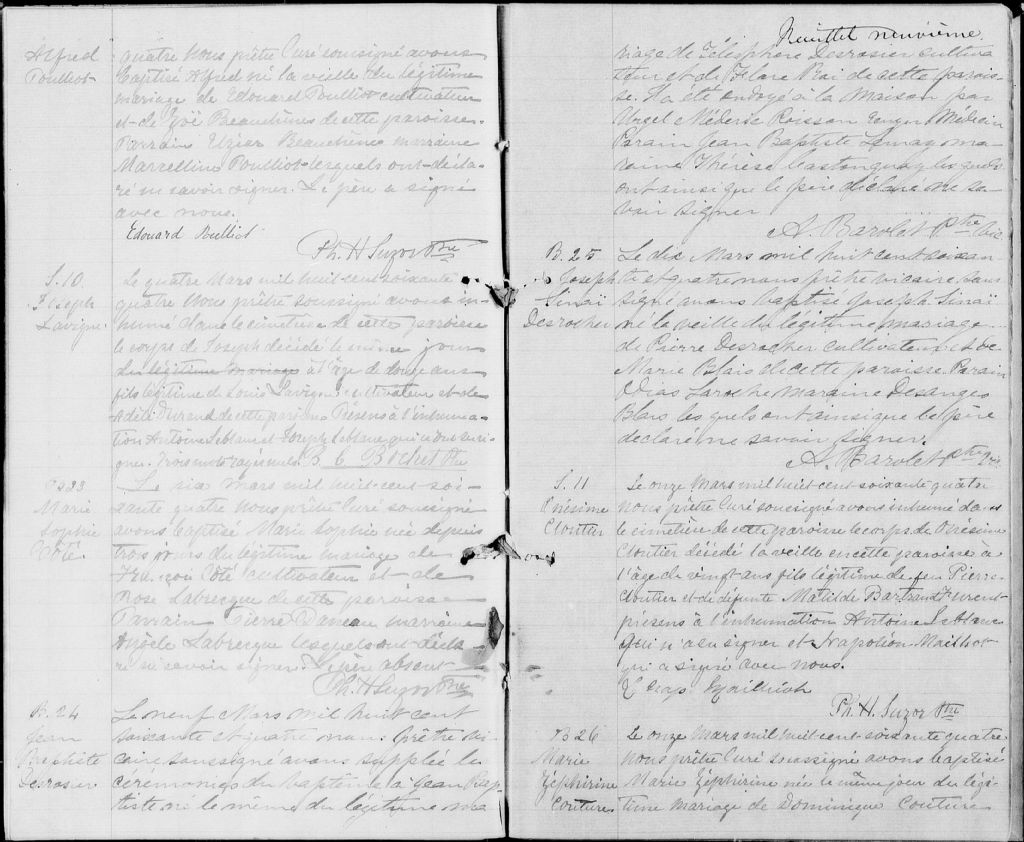 Alfred
Pouliot
quatre Nous prêtre Curé soussigné avons
baptisé Alfred né la veille du légitime
mariage de Edouard Pouliot cultivateur
et de Zoé Beauchênes de cette paroisse.
Parrain Elzéar Beauchêne marraine
Marcelline Pouliot lesquels ont décla-
ré ne savoir signer. Le père a signé
avec nous.
Edouard Pulliot
Ph. H Suzor Ptre
S. 10
Joseph
Lavigne
Le quatre Mars mil huit cent soixante
quatre Nous prêtre soussigné avons in-
humé dans le cimetière de cette paroisse
le corps de Joseph décédé le même jour
du légitime mariage à l'âge de douze ans
fils légitime de Louis Lavigne cultivateur et de
Adèle Durand de cette paroisse Présens à l'inhuma-
tion Antoine Leblanc et Joseph Leblanc qui n'ont su si-
gner. Trois mots rayés nuls. B. C Bochet Ptre
B 23
Marie
Sophie
Côté.
Le six Mars mil huit-cent-soi-
xante quatre Nous prêtre Curé soussigné
avons baptisé Marie Sophie née depuis
trois jours du légitime mariage de
François Côté cultivateur et de
Rose Labrecque de cette paroisse
Parrain Pierre Daneau marraine
Labrecque lesquels ont décla-
ré ne savoir signer. Le père absent
Ph. H Suzor Ptre
B. 24
Jean
Baptiste
Desrosier
Le neuf Mars mil huit cent
soixante et quatre nous prêtre vi-
caire soussigné avons supplée les
cérémonies du baptême à Jean Bap
tiste né le même du légitime ma
Feuillet neuvième.
riage de Télesphore Desrosier cultiva
teur et de Flare Roi de cette parois-
se. Il a été ondoyé à la maison par
Urgel Méderic Poisson Médecin
Parain Jean Baptiste Lemay ma-
raine Thérèse Castonguay lesquels
ont ainsi que le père déclaré ne sa-
voir signer
A. Barolet Ptre Vic
B. 25
Joseph
Sinaï
Desrocher
Le dix Mars mil huit cent soixan
te et quatre nous prêtre vicaire sous
signé avons baptisé Joseph Sinaï
né la veille du légitime mariage
de Pierre Desrocher cultivateur et de
Marie Blais de cette paroisse. Parain
Laroche Maraine Desanges
Blais les quels ont ainsi que le père
déclaré ne savoir signer.
A. Barolet Ptre Vic
S. 11
Onésime
Cloutier
Le onze Mars mil huit cent soixante quatre
Nous prêtre Curé soussigné avons inhumé dans
le cimetière de cette paroisse le corps de Onésime
Cloutier décédé la veille en cette paroisse à
l'âge de vingt ans fils légitime de feu Pierre
Cloutier et de défunte Matilde Bartrand Furent
présens à l'inhumation Antoine Leblanc
qui n'a su signer et Napoléon Mailhot
qui a signé avec nous.
Ph. H. Suzor Ptre
B 26
Marie
Zéphirine
Couture
Le onze Mars mil huit cent soixante quatre
Nous prêtre Curé soussigné avons baptisé
Marie Zéphirine née le même jour du légi-
time mariage de Dominique Couture